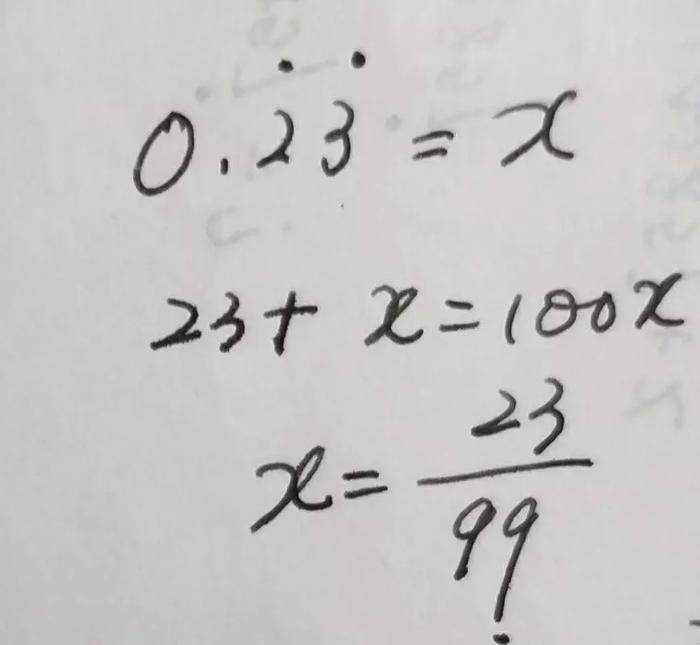 0.2̇3̇ = x
23 + x = 100x
x = 23/99